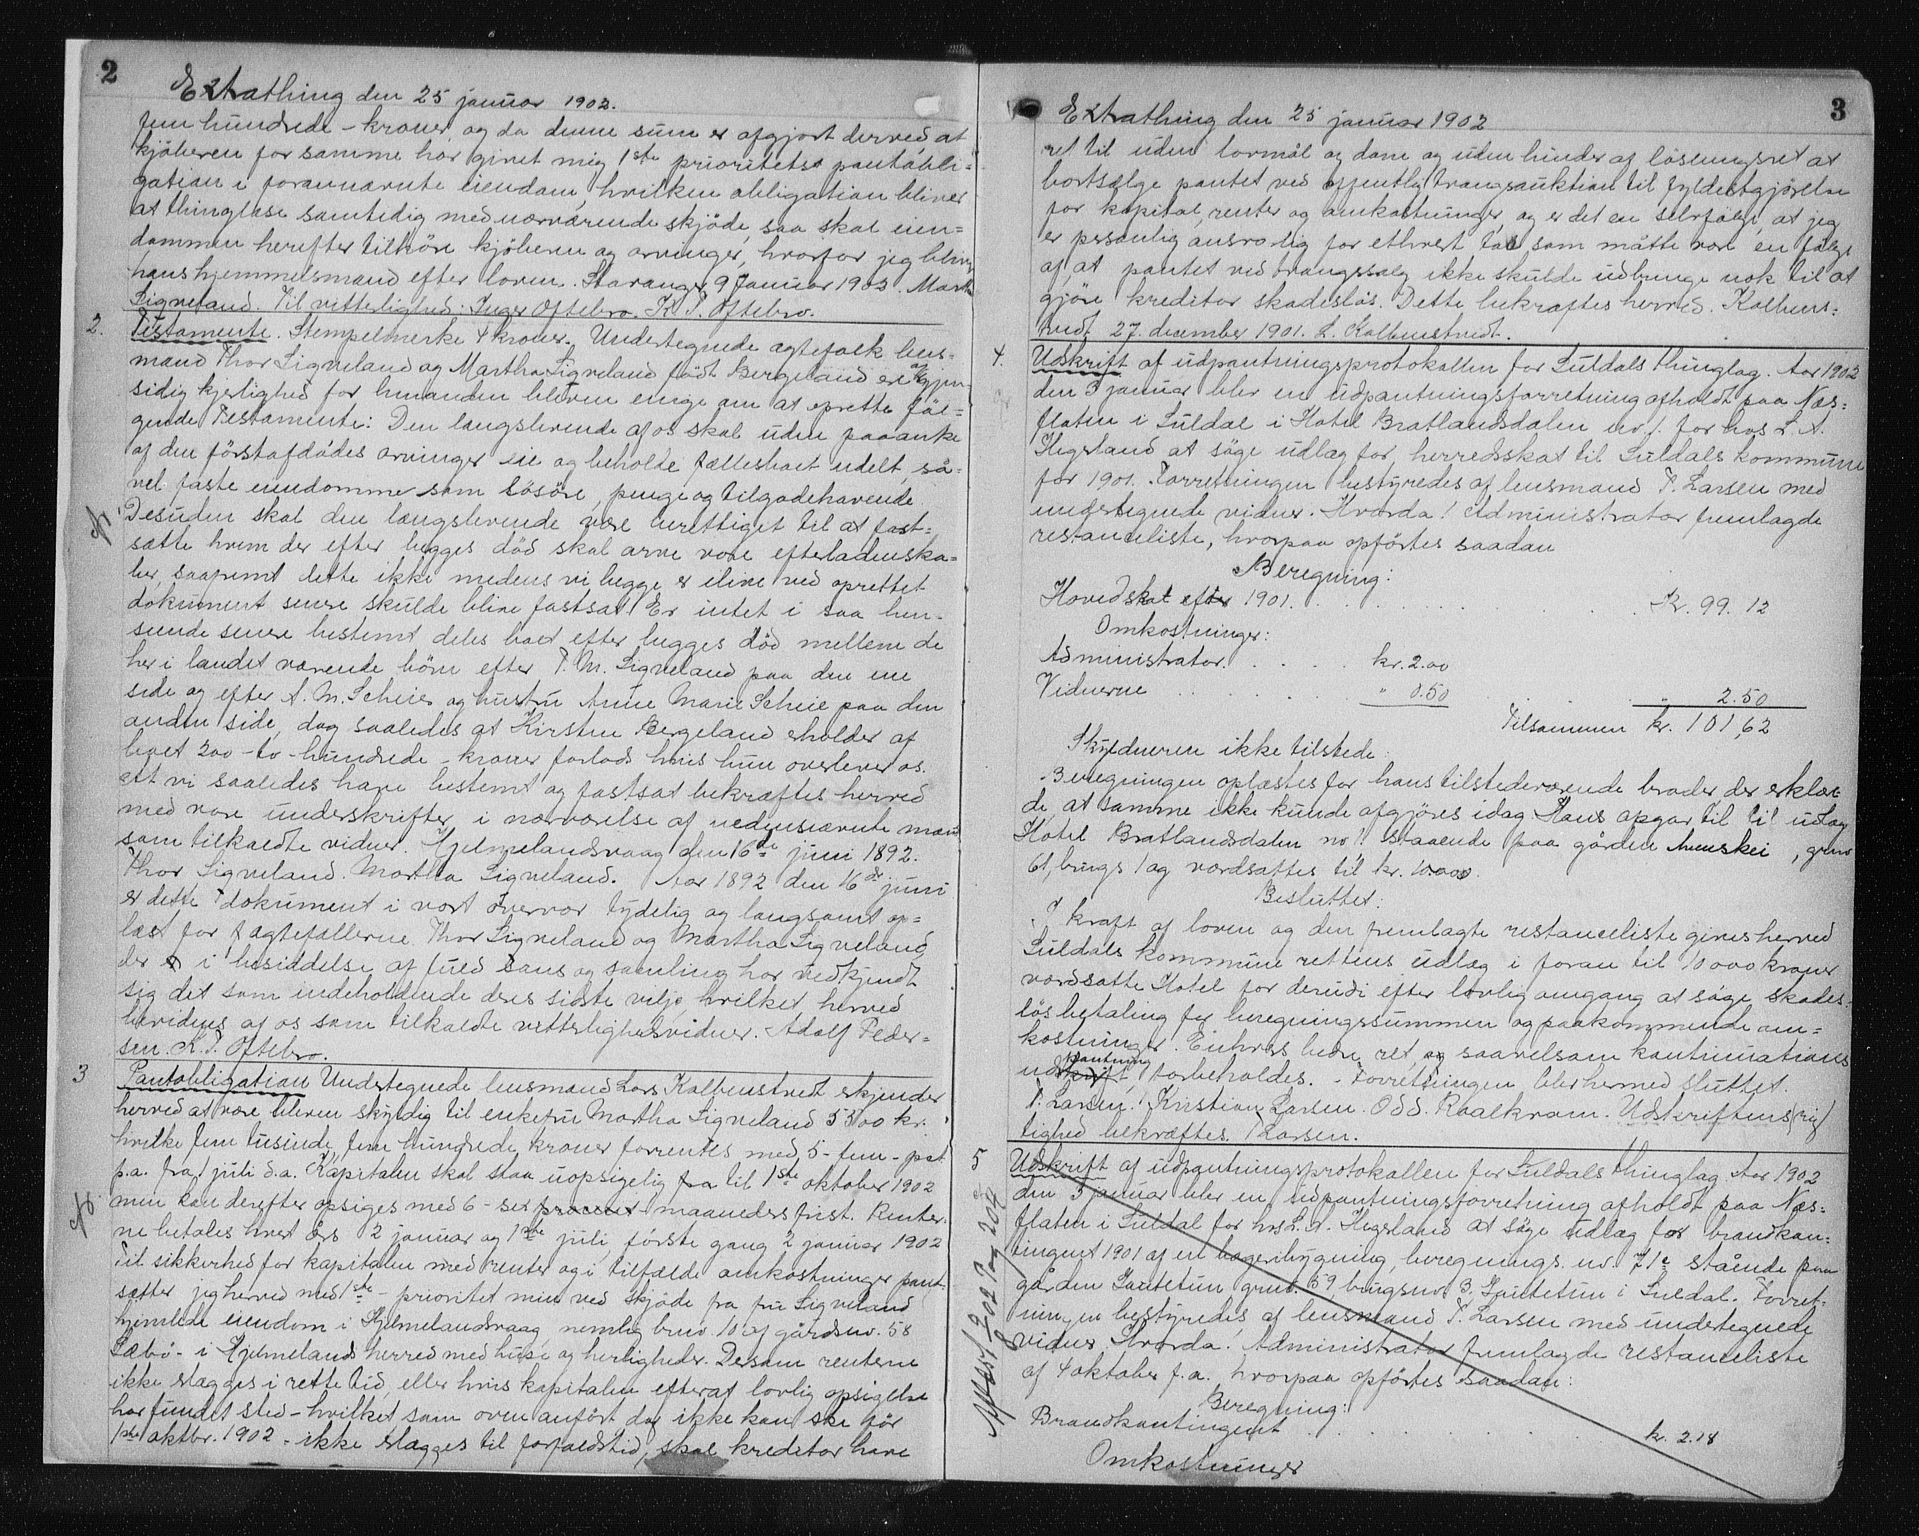 2
Extrathing den 25 januar 1902.
fem hundrede - kroner, og da denne sum er afgjort derved at
kjøberen for samme har givet mig 1ste prioritets pantobli-
gation i foranævnte eiendom, hvilken obligation bliver
at thinglæse samtidig med nærværende skjøde, saa skal eien-
dommen herefter tilhøre kjøberen og arvinger, hvorfor jeg bliver
hans hjemmelsmand efter loven. Stavanger 9 Januar 1902. Martha
Sigveland. Til vitterlighed: Inger Oftebro. K. T. Oftebro.
2. Testamente. Stempelmerke 4 kroner. Undertegnede ægtefolk lens-
mand Thor Sigveland og Martha Sigveland født Bergeland ere af gjen-
sidig kjerlighed for hinanden bleven enige om at oprette føl-
gende Testamente: Den længstlevende af os skal uden paaanke
af den førstafdødes arvinger eie og beholde fællesboet udelt, så-
vel faste eiendomme som løsøre, penge og tilgodehavende.
Desuden skal den længstlevende være berettiget til at fast-
sætte hvem der efter begges død skal arve vore efterladenska-
ber, saafremt dette ikke medens vi begge er ilive ved oprettet
dokument senere skulde blive fastsat. Er intet i saa hen-
seende senere bestemt deles boet efter begges død mellem de
her i landet værende børn efter T. M. Sigveland paa den ene
side og efter A. M. Scheie og hustru Anne Marie Scheie paa den
anden side, dog saaledes at Kirsten Bergeland erholder af
boet 200 - to - hundrede - kroner forlods hvis hun overlever os.
At vi saaledes have bestemt og fastsat bekræftes herved
med vore underskrifter i nærværelse af nedensnævnte mænd
som tilkaldte vidner. Hjelmelandsvaag den 16de juni 1892.
Thor Sigveland. Martha Sigveland. Aar 1892 den 16de juni
er dette dokument i vort overvær tydelig og langsomt op-
læst for ægtefællerne Thor Sigveland og Martha Sigveland,
der er i besiddelse af fuld sans og samling har vedkjendt
sig det som indeholdende deres sidste vilje, hvilket herved
bevidnes af os som tilkaldte vitterlighedsvidner. Adolf Peder-
sen. K. T. Oftebro.
3 Pantobligation Undertegnede lensmand Lars Kolbenstvedt erkjender
herved at være bleven skyldig til enkefru Martha Sigveland 5500 kr.
hvilke fem tusinde, fem hundrede kroner forrentes med 5 - fem - pct
p.a. fra 1 juli d.a. Kapitalen skal staa uopsigelig fra til 1ste oktober 1902
men kan derefter opsiges med 6 - sex maaneders frist. Renter-
ne betales hvert års 2 januar og 1ste juli, første gang 2 januar 1902
Til sikkerhed for kapitalen med renter og i tilfælde omkostninger pant-
sætter jeg herved med 1ste - prioritet min ved skjøde fra fru Sigveland
hjemlede eiendom i Hjelmelandsvaag, nemlig bruv. 10 af gårdsno. 58
Sæbø - i Hjelmelands herred med huse og herligheder. Dersom renterne
ikke erlægges i rette tid, eller hvis kapitalen efterat lovlig opsigelse
har fundet sted - hvilket som oven anført dog ikke kan ske før
1ste oktbr. 1902 - ikke erlægges til forfaldstid, skal kreditor have
3
Extrathing den 25 januar 1902
ret til uden lovmål og dom og uden hinder af løsningsret at
bortsælge pantet ved offentlig tvangsauktion til fyldestgjørelse
for kapital, renter og omkostninger, og er det en selvfølge, at jeg
er personlig ansvarlig for ethvert tab som måtte være en følge
af at pantet ved tvangssalg ikke skulde udbringe nok til at
gjøre kreditor skadesløs. Dette bekræftes herved. Kolbens-
tvedt 27. december 1901. L. Kolbenstvedt.
4. Udskrift af udpantningsprotokollen for Suldals thinglag. Aar 1902
den 3 januar blev en udpantningsforretning afholdt paa Næs-
flaten i Suldal i Hotel Bratlandsdalen no 1. for hos L. A.
Hegerland at søge udlæg for herredsskat til Suldals kommune
for 1901. Forretningen bestyredes af lensmand T. Larsen med
undertegnede vidner. Hvorda! Administrator fremlagde
restanceliste, hvorpaa opførtes saadan
Beregning:
Hovedskat efter 1901. . . . . . . . . . Kr. 99. 12
Omkostninger:
Administrator. . . . . kr. 2.00
Vidnerne . . . . . " 0.50 . . . " 2.50
Tilsammen kr. 101,62
Skyldneren ikke tilstede.
Beregningen oplæstes for hans tilstedeværende broder der erklære-
de, at samme ikke kunde afgjøres idag. Hans opgav til til udlæg
Hotel Bratlandsdalen no 1 staaende paa gården , gruv
61, brugs 1 og værdsattes til kr. 10000.
Besluttet:
I kraft af loven og den fremlagte restanceliste gives herved
Suldals kommune rettens udlæg i foran til 10 000 kroner
værdsatte Hotel for derudi efter lovlig omgang at søge skades-
løs betaling for beregningssummen og paakommende om-
kostninger. Enhvers bedre ret, og saavelsom kontinuations
udpantning forbeholdes. - Forretningen blev hermed sluttet.
T. Larsen. Kristian Larsen. Odd. Roalkvam. Udskriftens (rig)
tighed bekræftes. T Larsen.
5 Udskrift af udpantningsprotokollen for Suldals thinglag Aar 1902
den 3 januar blev en udpantningsforretning afholdt paa Næs-
flaten i Suldal for hos L. A. Hegerland at søge udlæg for brandkon-
tingent 1901 af en bageribygning, beregnings no. 71e stående paa
gården Gautetun, gruv. 59, brugsno 3, Gautetun i Suldal. Forret-
ningen bestyredes af lensmand T. Larsen med undertegnede
vidner. Hvorda! Administrator fremlagde restanceliste
af 4 oktober f.a. hvorpaa opførtes saadan:
Beregning:
Brandkontingent . . . . . . . . kr. 2.18
Omkostninger
Aflæst 1902 Pag 204